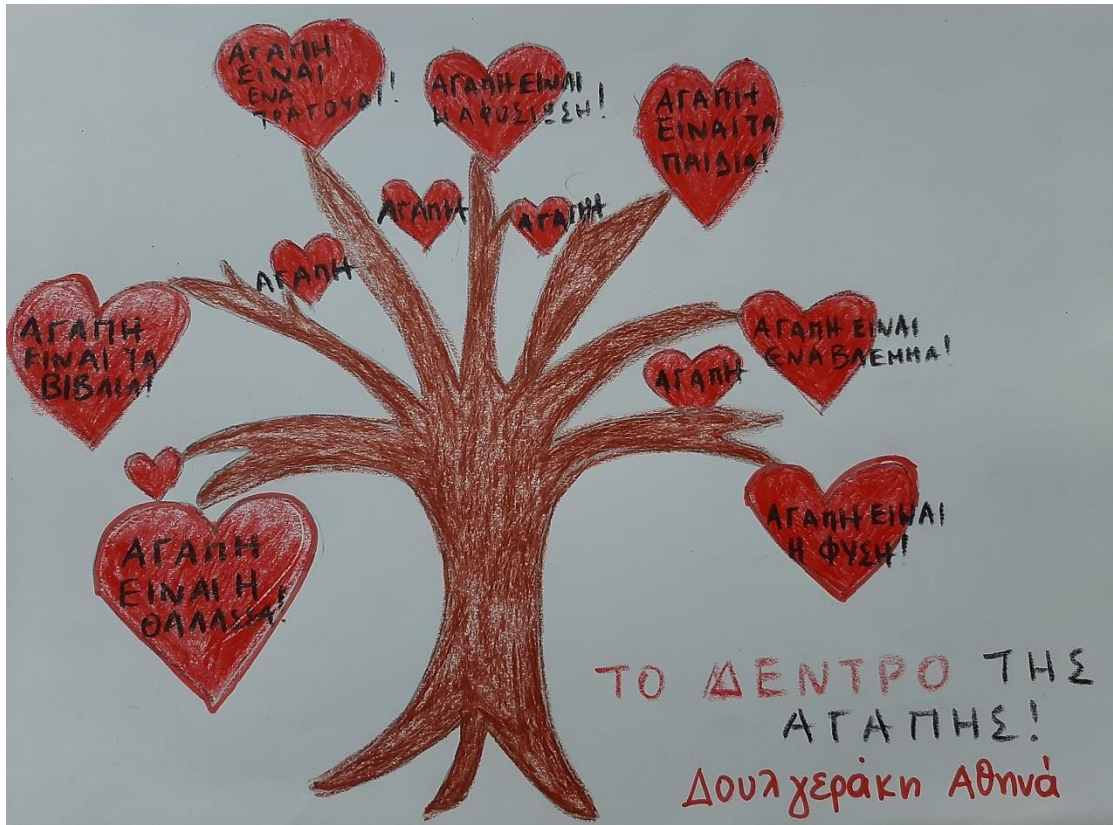 ΑΓΑΠΗ
ΕΙΝΑΙ
ΕΝΑ
ΤΡΑΓΟΥΔΙ!
ΑΓΑΠΗ ΕΙΝΑΙ
Η ΑΦΟΣΙΩΣΗ!
ΑΓΑΠΗ
ΕΙΝΑΙ ΤΑ
ΠΑΙΔΙΑ!
ΑΓΑΠΗ
ΑΓΑΠΗ
ΑΓΑΠΗ
ΑΓΑΠΗ
ΕΙΝΑΙ ΤΑ
ΒΙΒΛΙΑ!
ΑΓΑΠΗ ΕΙΝΑΙ
ΕΝΑ ΒΛΕΜΜΑ!
ΑΓΑΠΗ
ΑΓΑΠΗ
ΕΙΝΑΙ Η
ΘΑΛΑΣΣΑ!
ΑΓΑΠΗ ΕΙΝΑΙ
Η ΦΥΣΗ!
ΤΟ ΔΕΝΤΡΟ ΤΗΣ
ΑΓΑΠΗΣ!
Δουλγεράκη Αθηνά